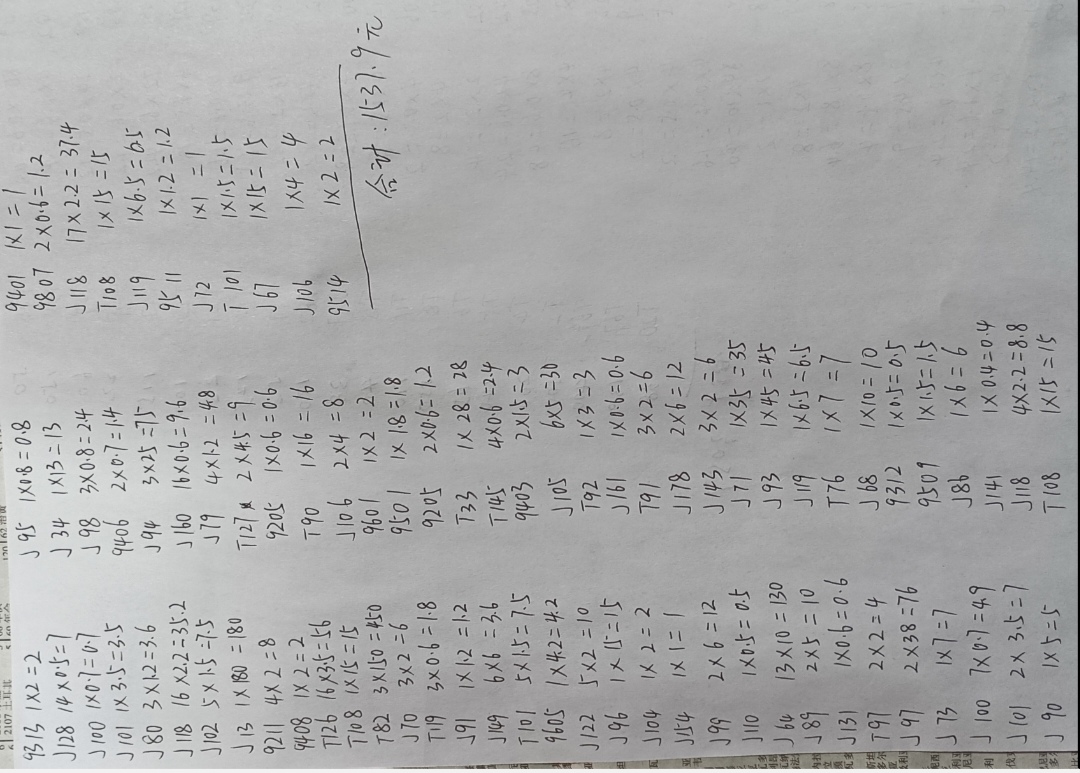 9313 1×2=2
J128 14×0.5=7
J100 1×0.7=0.7
J101 1×3.5=3.5
J80 3×1.2=3.6
J118 16×2.2=35.2
J102 5×1.5=7.5
J13 1×180=180
9211 4×2=8
9408 1×2=2
T126 16×3.5=56
T108 1×15=15
T82 3×150=450
J70 3×2=6
T19 3×0.6=1.8
J91 1×1.2=1.2
J149 6×6=3.6
T101 5×1.5=7.5
9605 1×4.2=4.2
J122 5×2=10
J96 1×15=15
J104 1×2=2
J154 1×1=1
J99 2×6=12
J110 1×0.5=0.5
J64 13×10=130
J89 2×5=10
J131 1×0.6=0.6
T97 2×2=4
J97 2×38=76
J73 1×7=7
J100 7×0.7=4.9
J101 2×3.5=7
J90 1×5=5
J95 1×0.8=0.8
J34 1×13=13
J98 3×0.8=2.4
9406 2×0.7=1.4
J94 3×25=75
J160 16×0.6=9.6
J79 4×1.2=4.8
T127 2×4.5=9
9205 1×0.6=0.6
T90 1×16=16
J106 2×4=8
9601 1×2=2
9501 1×1.8=1.8
9205 2×0.6=1.2
T33 1×28=28
T145 4×0.6=2.4
9403 2×1.5=3
J105 6×5=30
T92 1×3=3
J161 1×0.6=0.6
T91 3×2=6
J178 2×6=12
J143 3×2=6
J71 1×35=35
J93 1×45=45
J119 1×6.5=6.5
T76 1×7=7
J68 1×10=10
9312 1×0.5=0.5
9509 1×1.5=1.5
J86 1×6=6
J141 1×0.4=0.4
J118 4×2.2=8.8
T108 1×15=15
9401 1×1=1
9807 2×0.6=1.2
J118 17×2.2=37.4
T108 1×15=15
J119 1×6.5=6.5
9511 1×1.2=1.2
J72 1×1=1
T101 1×1.5=1.5
J67 1×15=15
J106 1×4=4
9514 1×2=2
合计:1537.9元